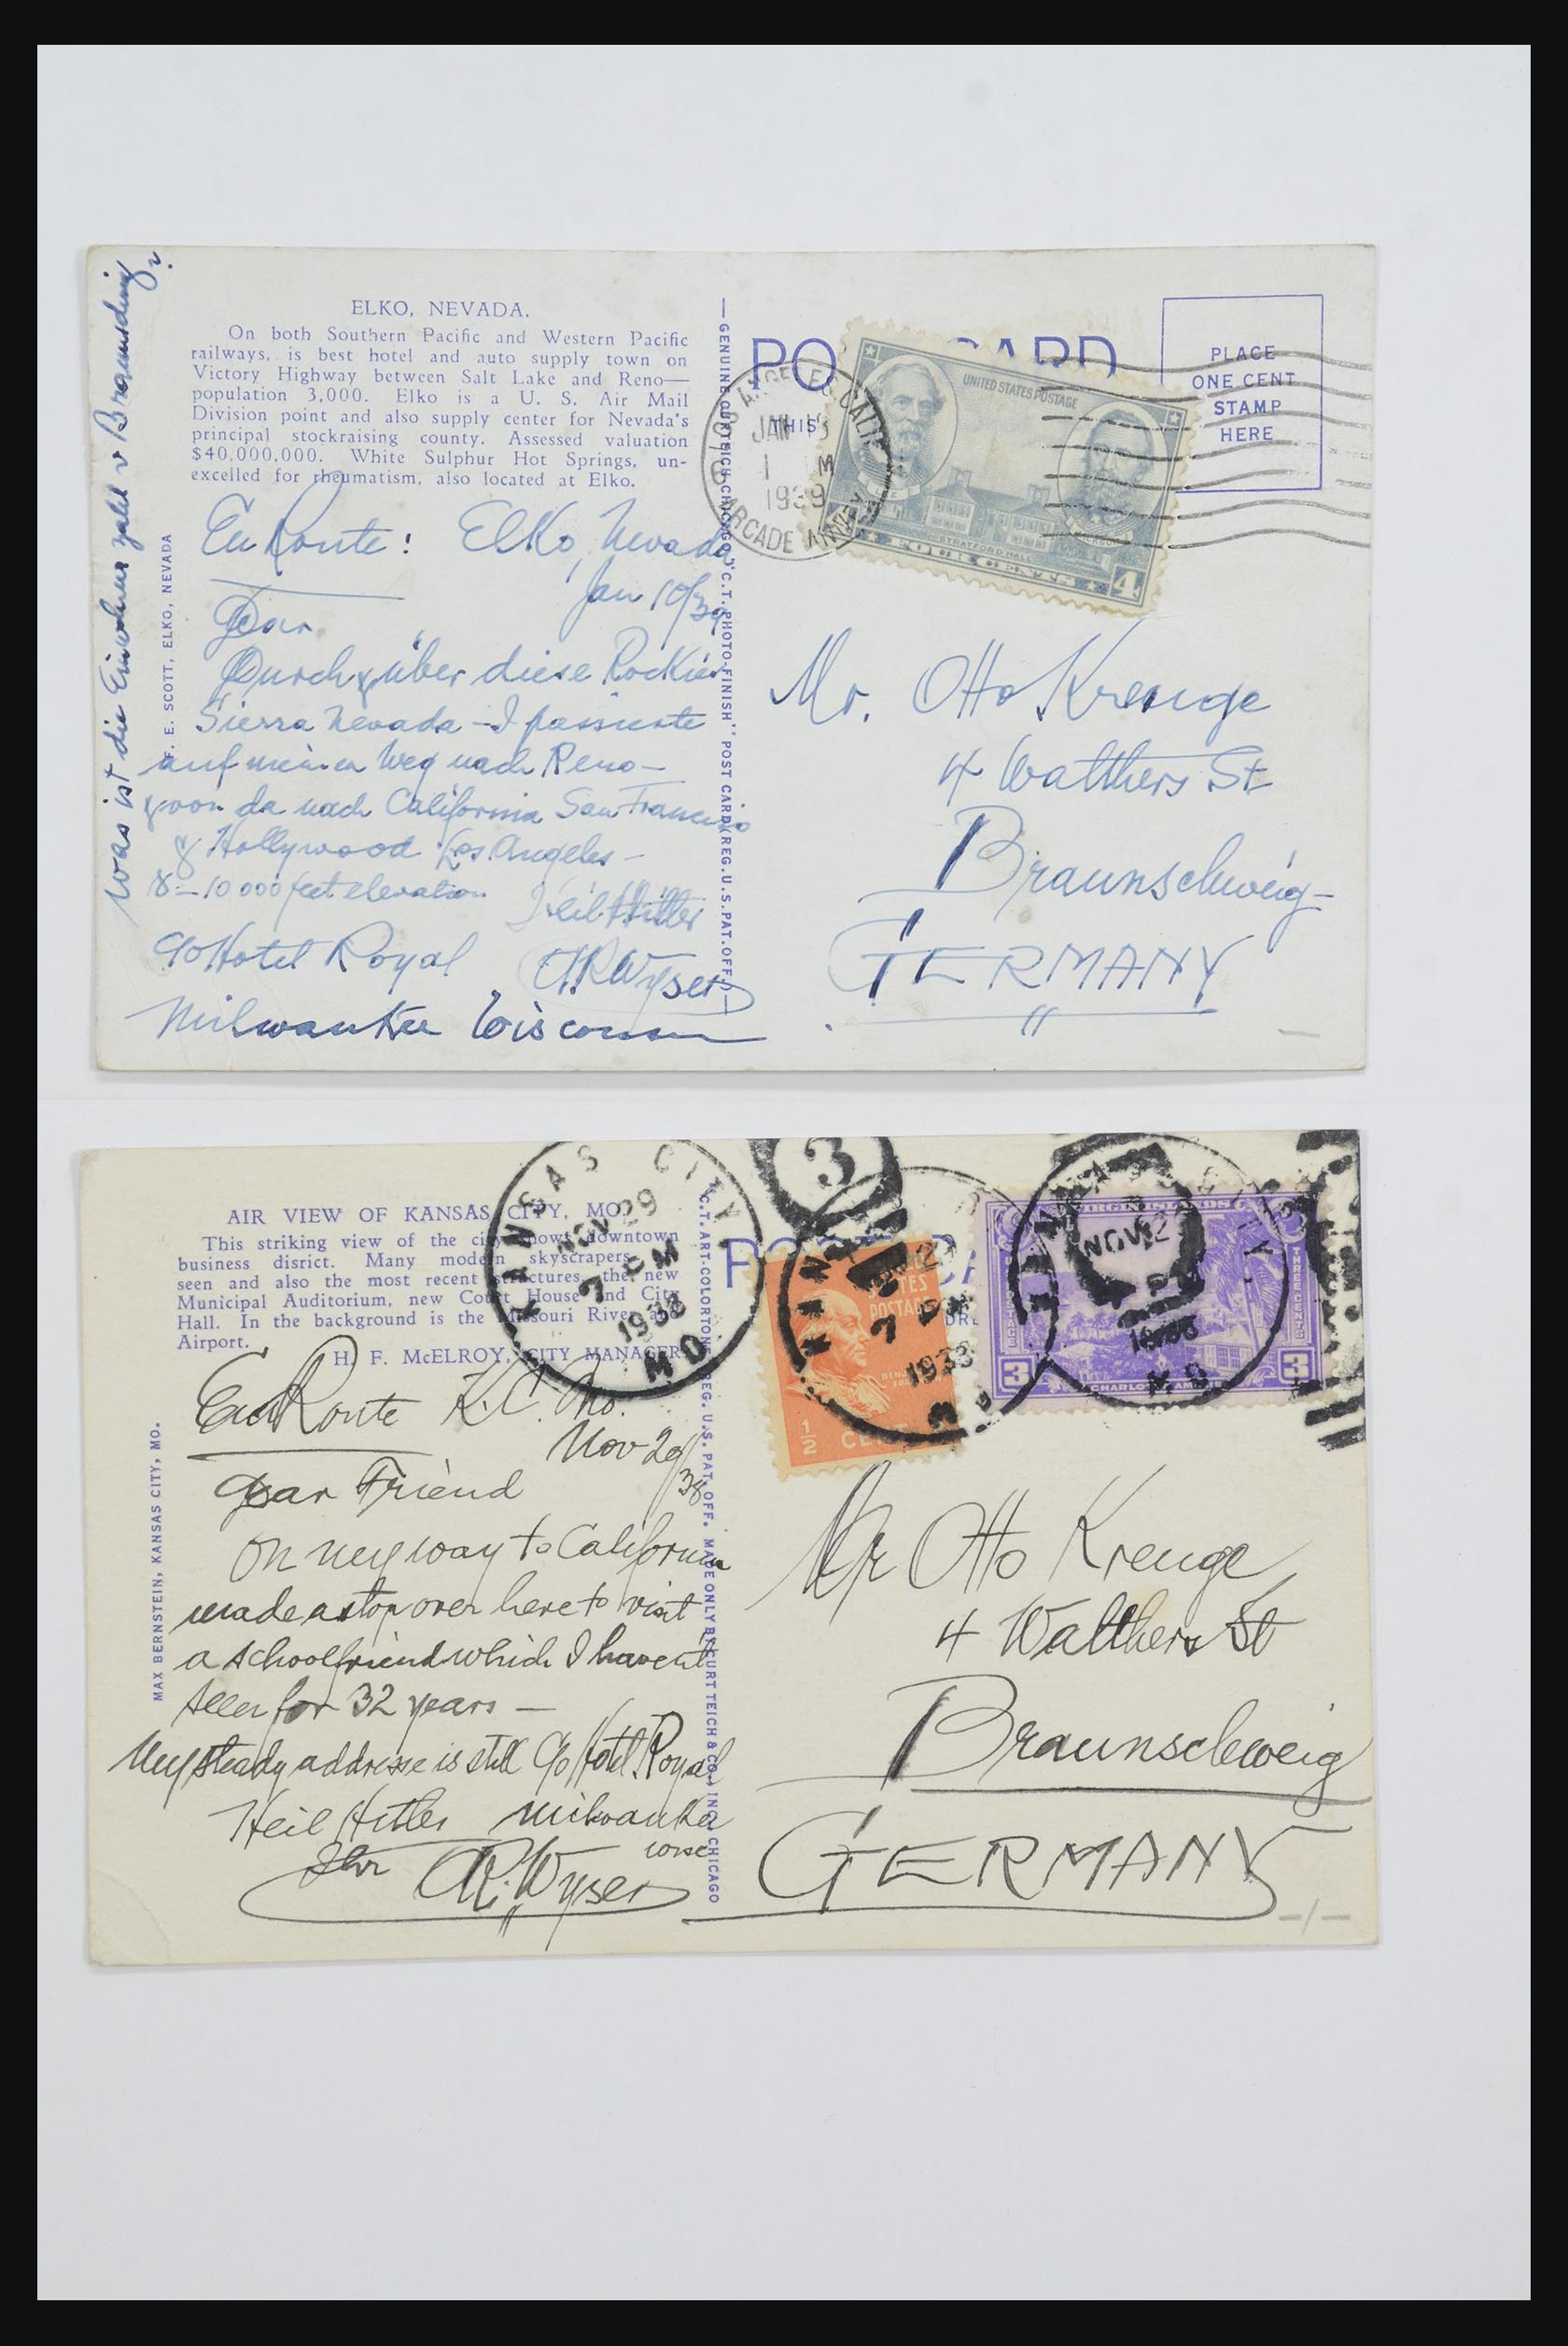 ELKO, NEVADA.
On both Southern Pacific and Western Pacific
railways, is best hotel and auto supply town on
Victory Highway between Salt Lake and Reno—
population 3,000. Elko is a U. S. Air Mail
Division point and also supply center for Nevada's
principal stockraising county. Assessed valuation
$40,000,000. White Sulphur Hot Springs, un-
excelled for rheumatism, also located at Elko.
En Route: Elko, Nevada
Jan 10/39
Dear
Durch & über diese Rockies
Sierra Nevada - I passierte
auf meinen Weg nach Reno—
& von da nach California San Francisco
& Hollywood Los Angeles—
8—10 000 feet elevation
Heil Hitler
c/o Hotel Royal A.R. Wyser
Milwaukee Wisconsin
Was ist die Einwohner zahl v Braunschweig?
F. E. SCOTT, ELKO, NEVADA
— GENUINE CURTEICH-CHICAGO "C.T. PHOTO-FINISH" POST CARD (REG. U.S. PAT. OFF.) —
PO CARD
THIS
LOS ANGELES CALIF
JAN 13
1 M
1939
ARCADE ANNEX
UNITED STATES POSTAGE
STRATFORD HALL
4
PLACE
ONE CENT
STAMP
HERE
Mr. Otto Krenge
4 Walthers St
Braunschweig—
GERMANY
AIR VIEW OF KANSAS CITY, MO.
This striking view of the city shows downtown
business disrict. Many modern skyscrapers
seen and also the most recent structures, the new
Municipal Auditorium, new Court House and City
Hall. In the background is the Missouri River and
Airport.
H. F. McELROY, CITY MANAGER
KANSAS CITY
NOV 29
7 PM
1938
MO
En Route K.C. Mo.
Nov 29/38
Dear Friend
On my way to California
made a stop over here to visit
a schoolfriend which I havent
seen for 32 years —
My steady addresse is still c/o Hotel Royal
Heil Hitler Milwaukee
Wisc
Ihr A.R. Wyser
MAX BERNSTEIN, KANSAS CITY, MO.
"C.T. ART-COLORTONE" REG. U.S. PAT. OFF. MADE ONLY BY CURT TEICH & CO., INC., CHICAGO
3
STATES
POSTAGE
1/2 CENT
7 PM
1938
VIRGIN ISLANDS
NOV 2
THREE CENTS
3 CHARLOTTE AMALIE 3
Mr Otto Krenge
4 Walthers St
Braunschweig
GERMANY
-/-